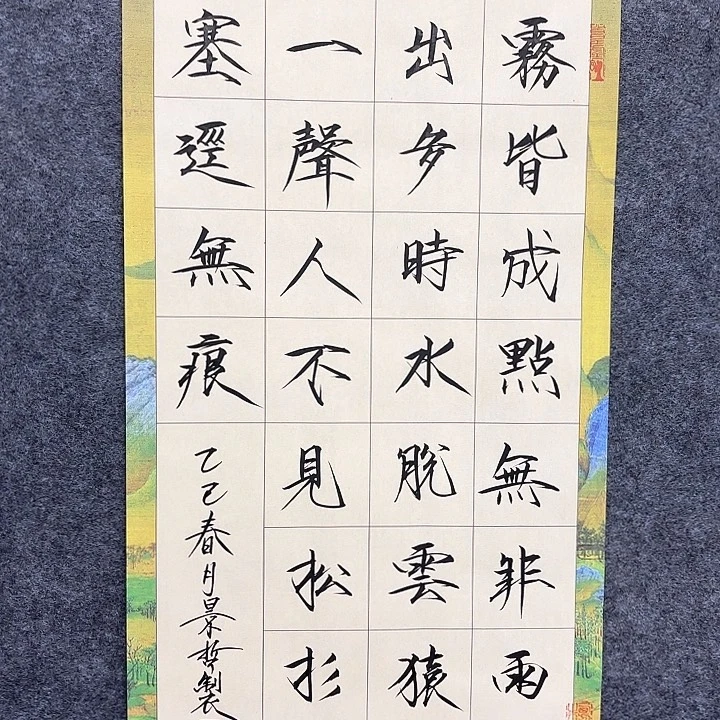 霧皆成點無非雨
出多時水脫雲猿
一聲人不見松杉
塞逕無痕
乙巳春月景哲製